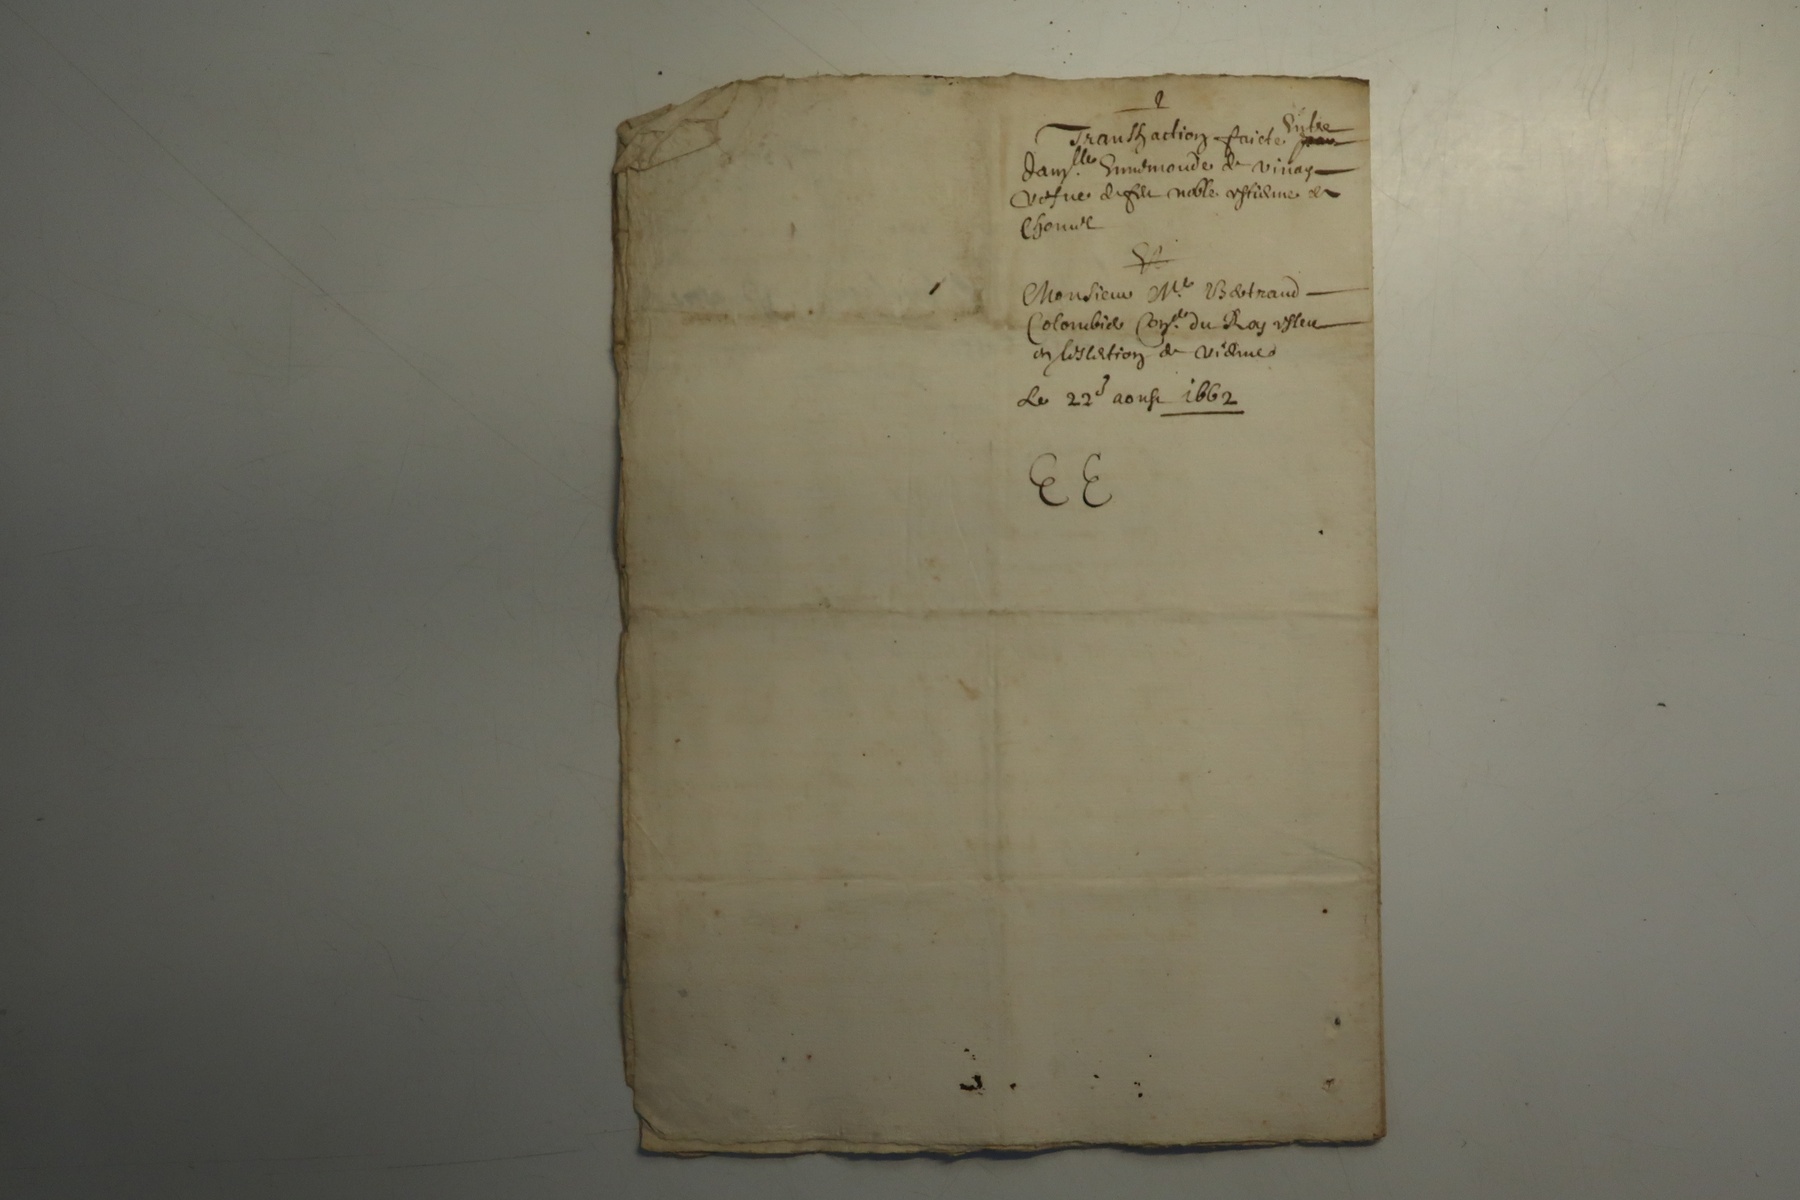 Transhaction faicte Entre
dam.lle Ennemonde de Vinay
vefve de feu noble estiene de
Chomel
Et
Monsieur Me Bertrand
Colombier Con.er du Roy esleu
en leslection de vienne
Le 22e aoust 1662
E E